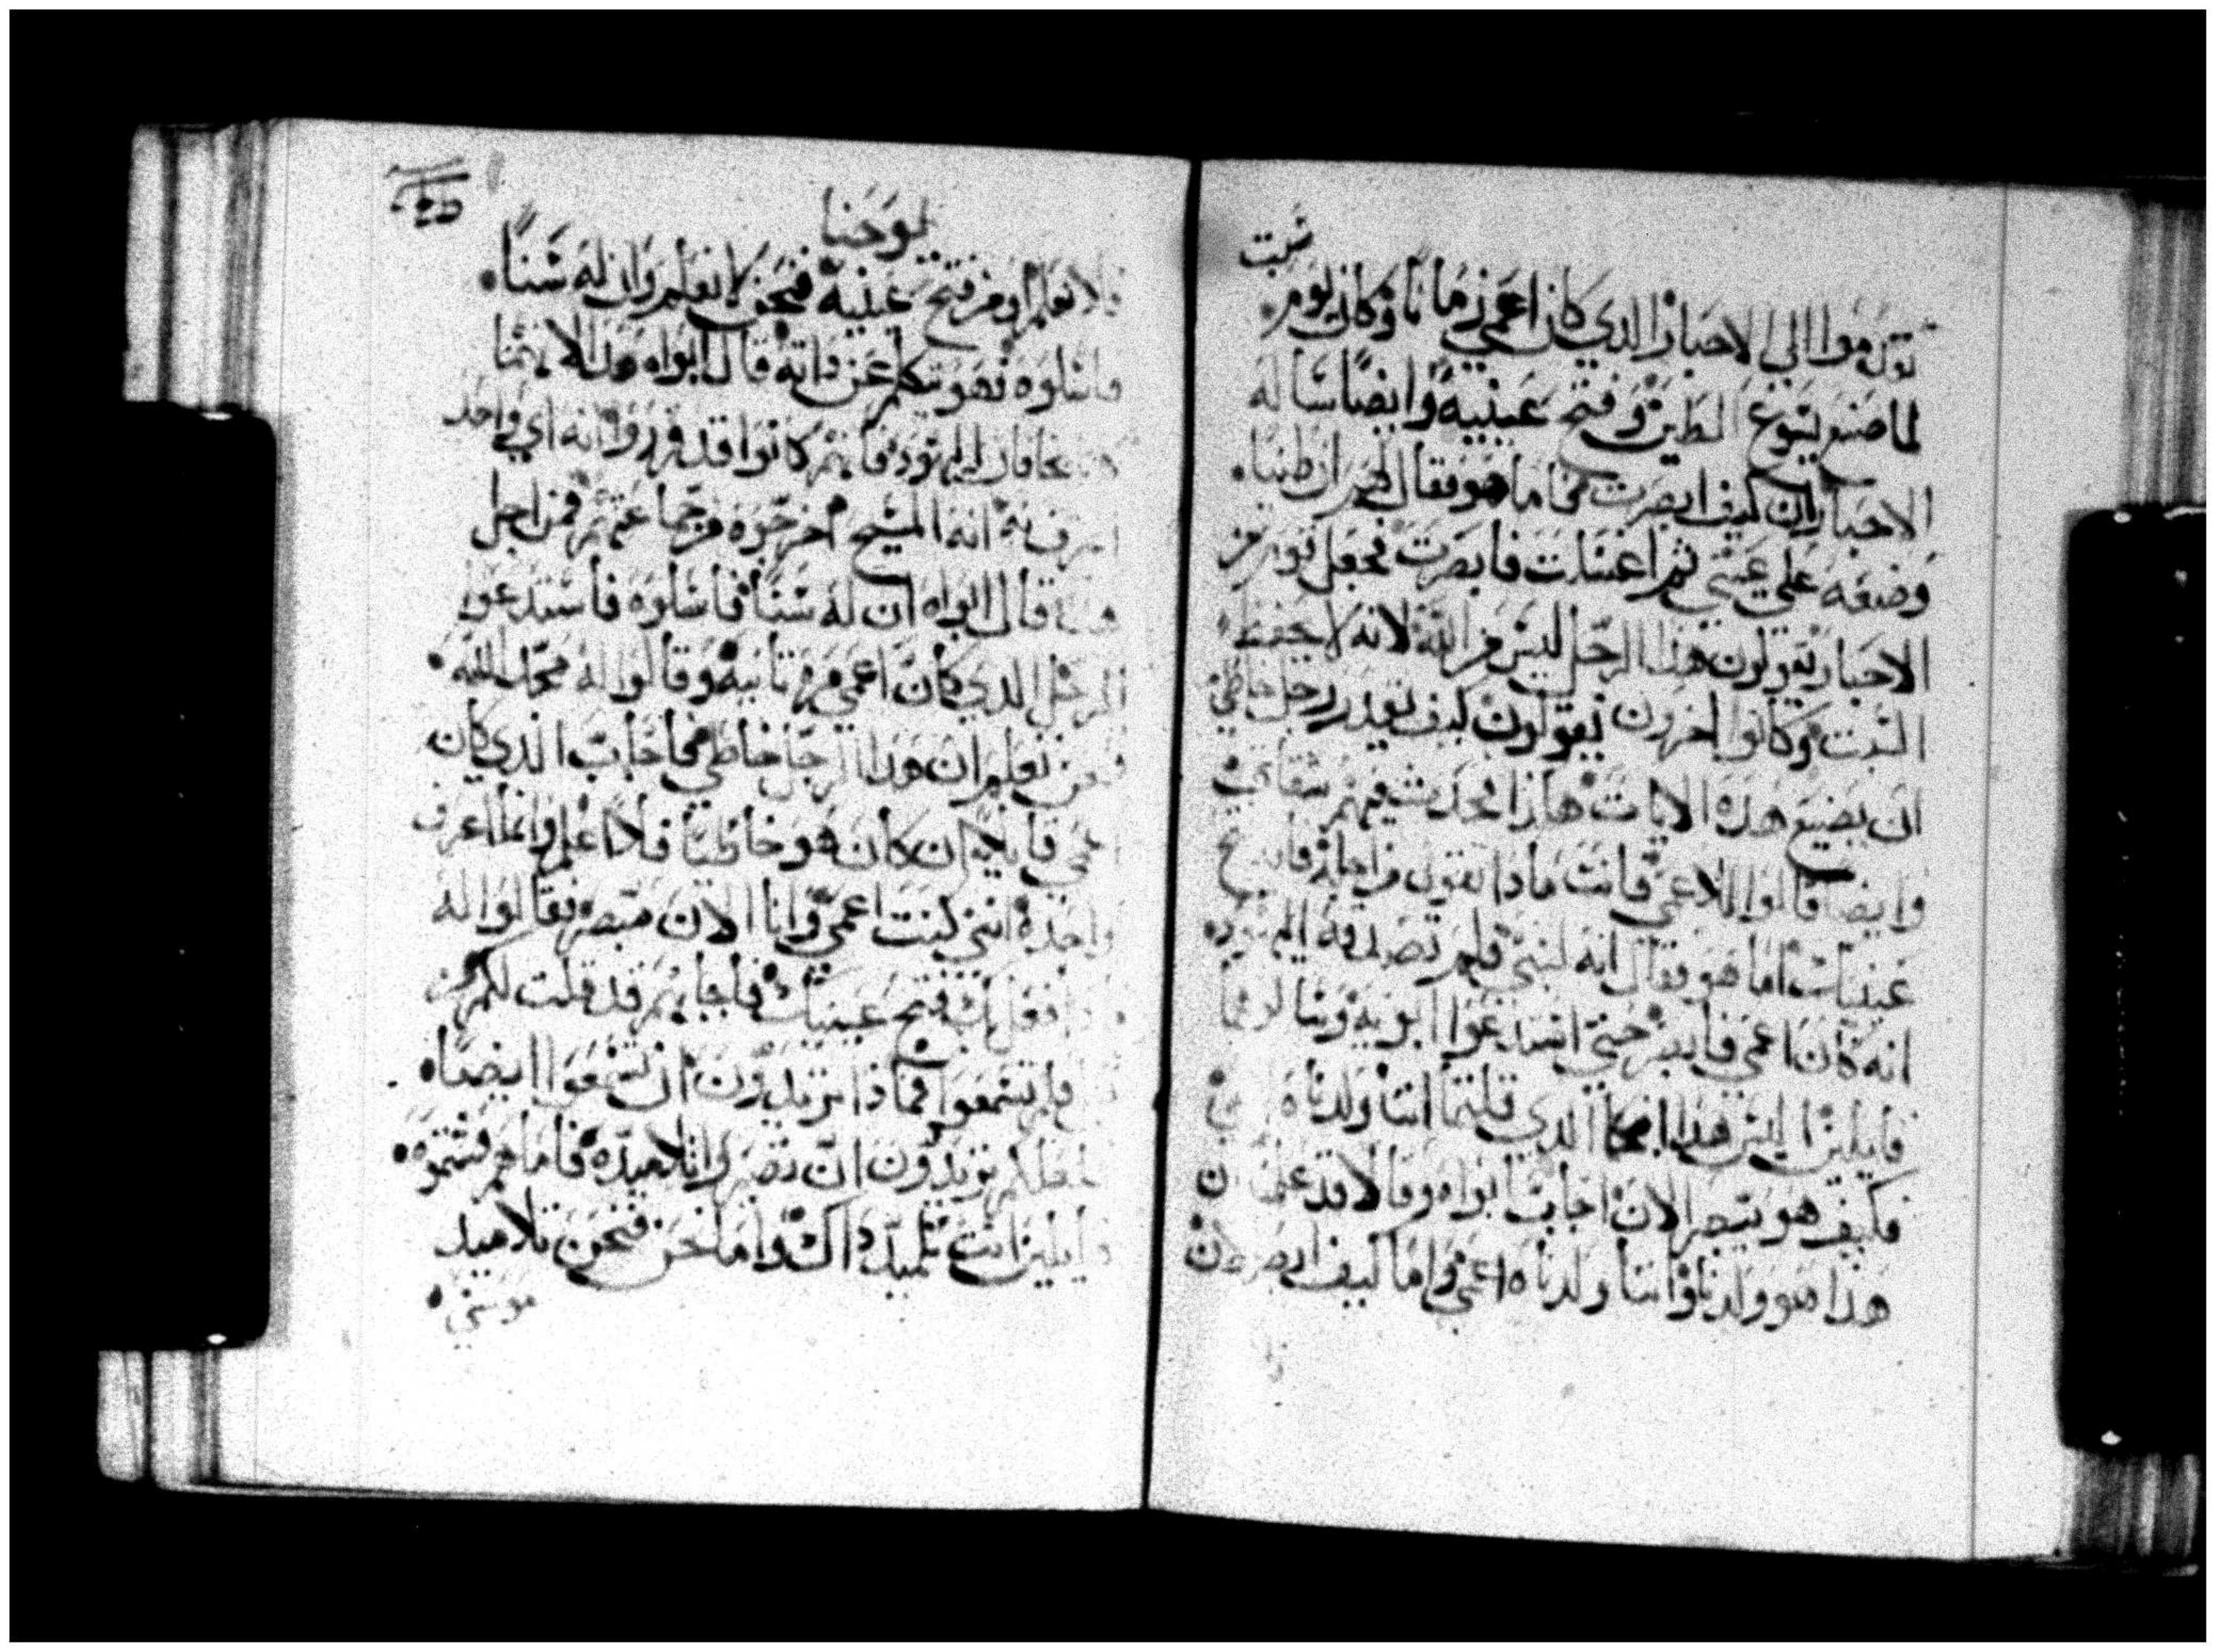 سبت
الي الاحبار الدي كان اعمي زمانًا وكان يوم
لما صنع يسوع الطين وفتح عينيه وايضًا ساله
الاحبار ان كيف ابصرت اما هو فقال لهم ان طينًا
وضعه علي عيني ثم اغتسلت فابصرت فجعل قوم من
الاحبار يقولون هذا الرجل ليس من الله لانه لا يحفظ
السبت وكانوا اخرون يقولون كيف يقدر رجل خاطي
ان يصنع هذه الايات فيهم شقاق
وايضا قالوا للاعمي فانت ماذا تقول من اجله فاتح
عينيك اما هو فقال انه لنبي فلم تصدقه اليهود
انه كان اعمي فابصر حتي استدعوا ابويه وسالوهما
قايلين اليس هذا ابنكما الدي قلتما اننا ولدناه
فكيف هو يبصر الان اجاب ابواه وقالا قد علمنا ان
هذا هو ولدنا واننا ولدناه اعمي واما كيف ابصر الان
يوحنا
فلا نعلم او من فتح عينيه فنحن لا نعلم وان له سنًا
فاسلوه فهو يتكلم عن داته قال ابواه هدا لانهما
كانا يخافان اليهود فانهم كانوا قد قرروا انه اي واحد
اعترف به انه المسيح اخرجوه من جماعتهم فمن اجل
هدا قال ابواه ان له سنًا فاسلوه فاستدعوا
الرجل الدي كان اعمي مرة تانية وقالوا له مجد الله
فنحن نعلم ان هدا الرجل خاطي فاجاب الذي كان
اعمي قايلا ان كان هو خاطيًا فلا اعلم وانما اعرف
واحدة انني كنت اعمي وانا الان مبصر فقالوا له
ماذا فعل بك فتح عينيك فاجابهم قد قلت لكم
فلم تسمعوا فماذا تريدون ان تسمعوا ايضًا
لعلكم تريدون ان تصيروا تلاميده فاما هم فشتموه
قايلين انت تلميد داك واما نحن فنحن تلاميد
موسي